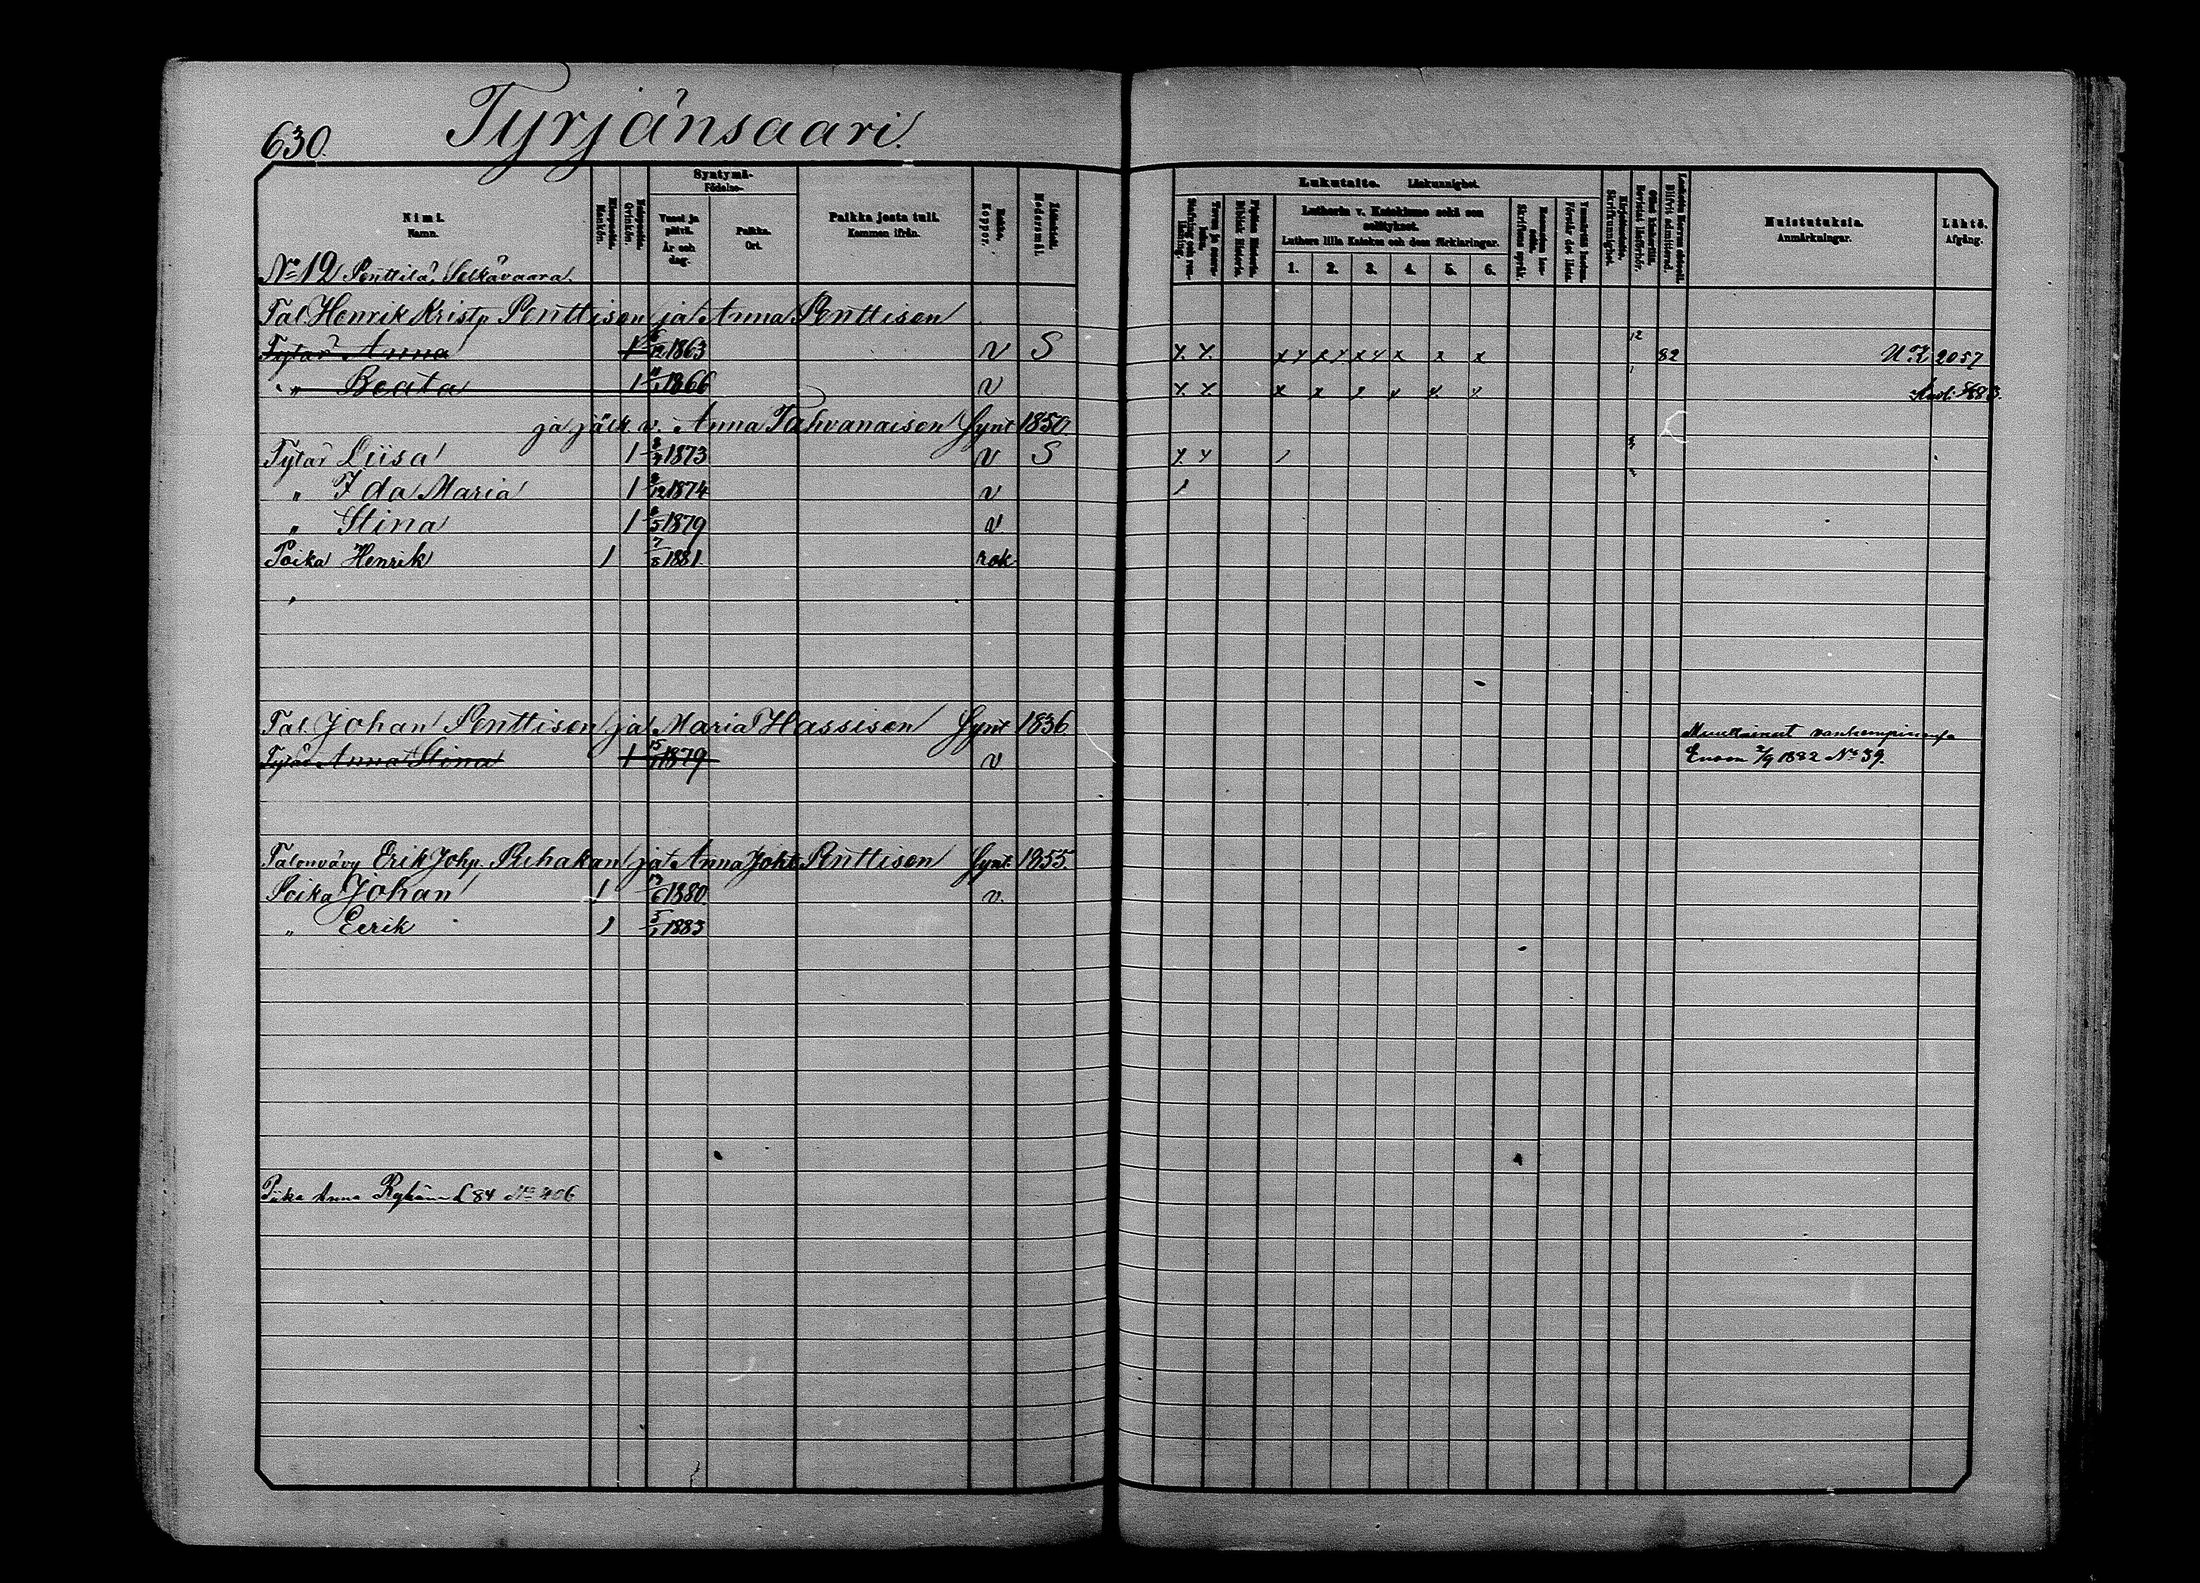 630. Tyrjänsaari.
Syntymä-
Födelse-
Nimi.
Namn.
Miespuolia.
Mankön.
Vaimopuolia.
Qvinkön.
Vuosi ja päivä.
År och dag.
Paikka.
Ort.
Paikka josta tuli.
Kommen ifrån.
Rokko.
Koppor.
Lukutaito. Läskunnighet.
Lutherin v. Katekismo sekä sen selitykset.
Luthers lilla Katekes och dess förklaringar.
1. 2. 3. 4. 5. 6.
Muistutuksia.
Anmärkningar.
Lähtö.
Afgång.
No 12 Penttilä, Selkävaara
Tal. Henrik Kristp. Penttisen ja Anna Penttisen
Tytär Anna 1 12 1863 v S 12 82 U.K. 2057
" Beata 1 1866 v
ja jälk. v. Anna Tahvanaisen Synt 1850.
Tytär Liisa 1 1873 v S
" Ida Maria 1 12 1874 v
" Stina 1 5 1879 v.
Poika Henrik 1 7/8 1881. rok
Tal. Johan Penttisen ja Maria Hassisen Synt 1836
Tytär Anna Stina 1 15 1879 v
Enoon 1882 No 39.
Talonvävy Erik Johp. Puhakan ja Anna Joht Penttisen Synt. 1855.
Poika Johan 1 6 1880. v.
" Eerik 1 5/1 1883
Piika Anna
84 No 406